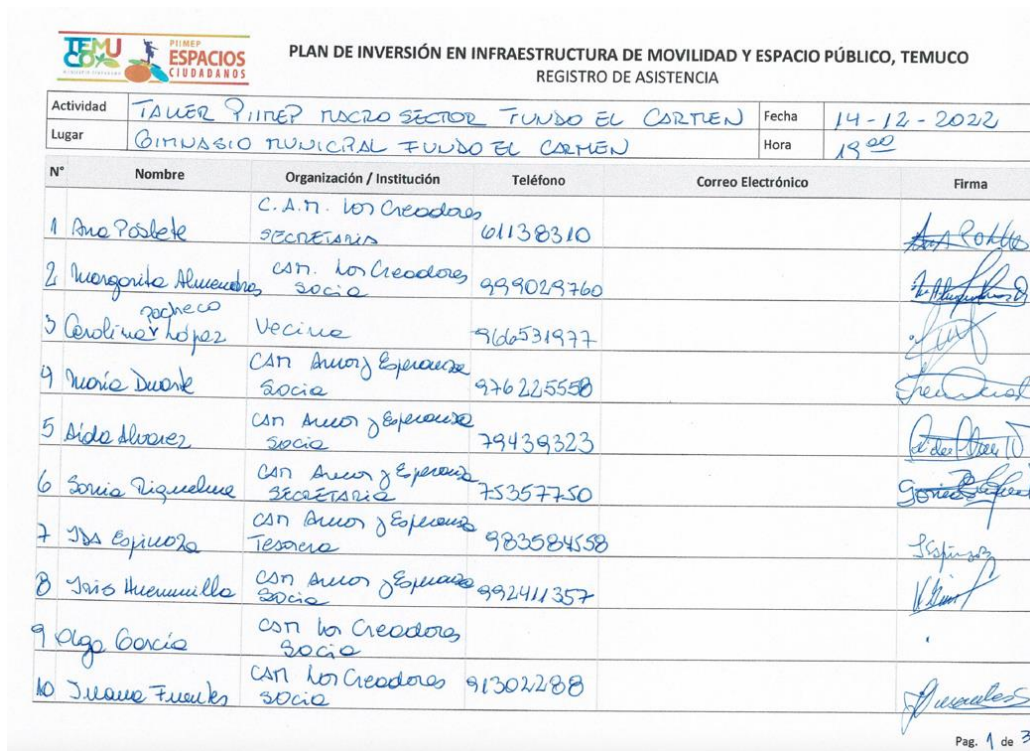 TEMUCO
PIIMEP
ESPACIOS
CIUDADANOS
PLAN DE INVERSIÓN EN INFRAESTRUCTURA DE MOVILIDAD Y ESPACIO PÚBLICO, TEMUCO
REGISTRO DE ASISTENCIA
Actividad TALLER PIIMEP MACRO SECTOR FUNDO EL CARMEN Fecha 14-12-2022
Lugar GIMNASIO MUNICIPAL FUNDO EL CARMEN Hora 19 00
N° Nombre Organización / Institución Teléfono Correo Electrónico Firma
1 Ana Poblete C.A.M. Los Creadores SECRETARIA 61138310
2 Margarita Almendras CAM. Los Creadores Socia 999029760
3 Carolina Pacheco López Vecina 966531977
4 María Duarte CAM Amor y Esperanza Socia 976225558
5 Aida Alvarez CAM Amor y Esperanza Socia 79439323
6 Sonia Riquelme CAM Amor y Esperanza SECRETARIA 75357750
7 Espinoza CAM Amor y Esperanza Tesorera 983584558
8 Huenumilla CAM Amor y Esperanza Socia 992411357
9 Olga García CAM Los Creadores Socia
10 Juana Fuentes CAM Los Creadores Socia 91302288
Pag. 1 de 3